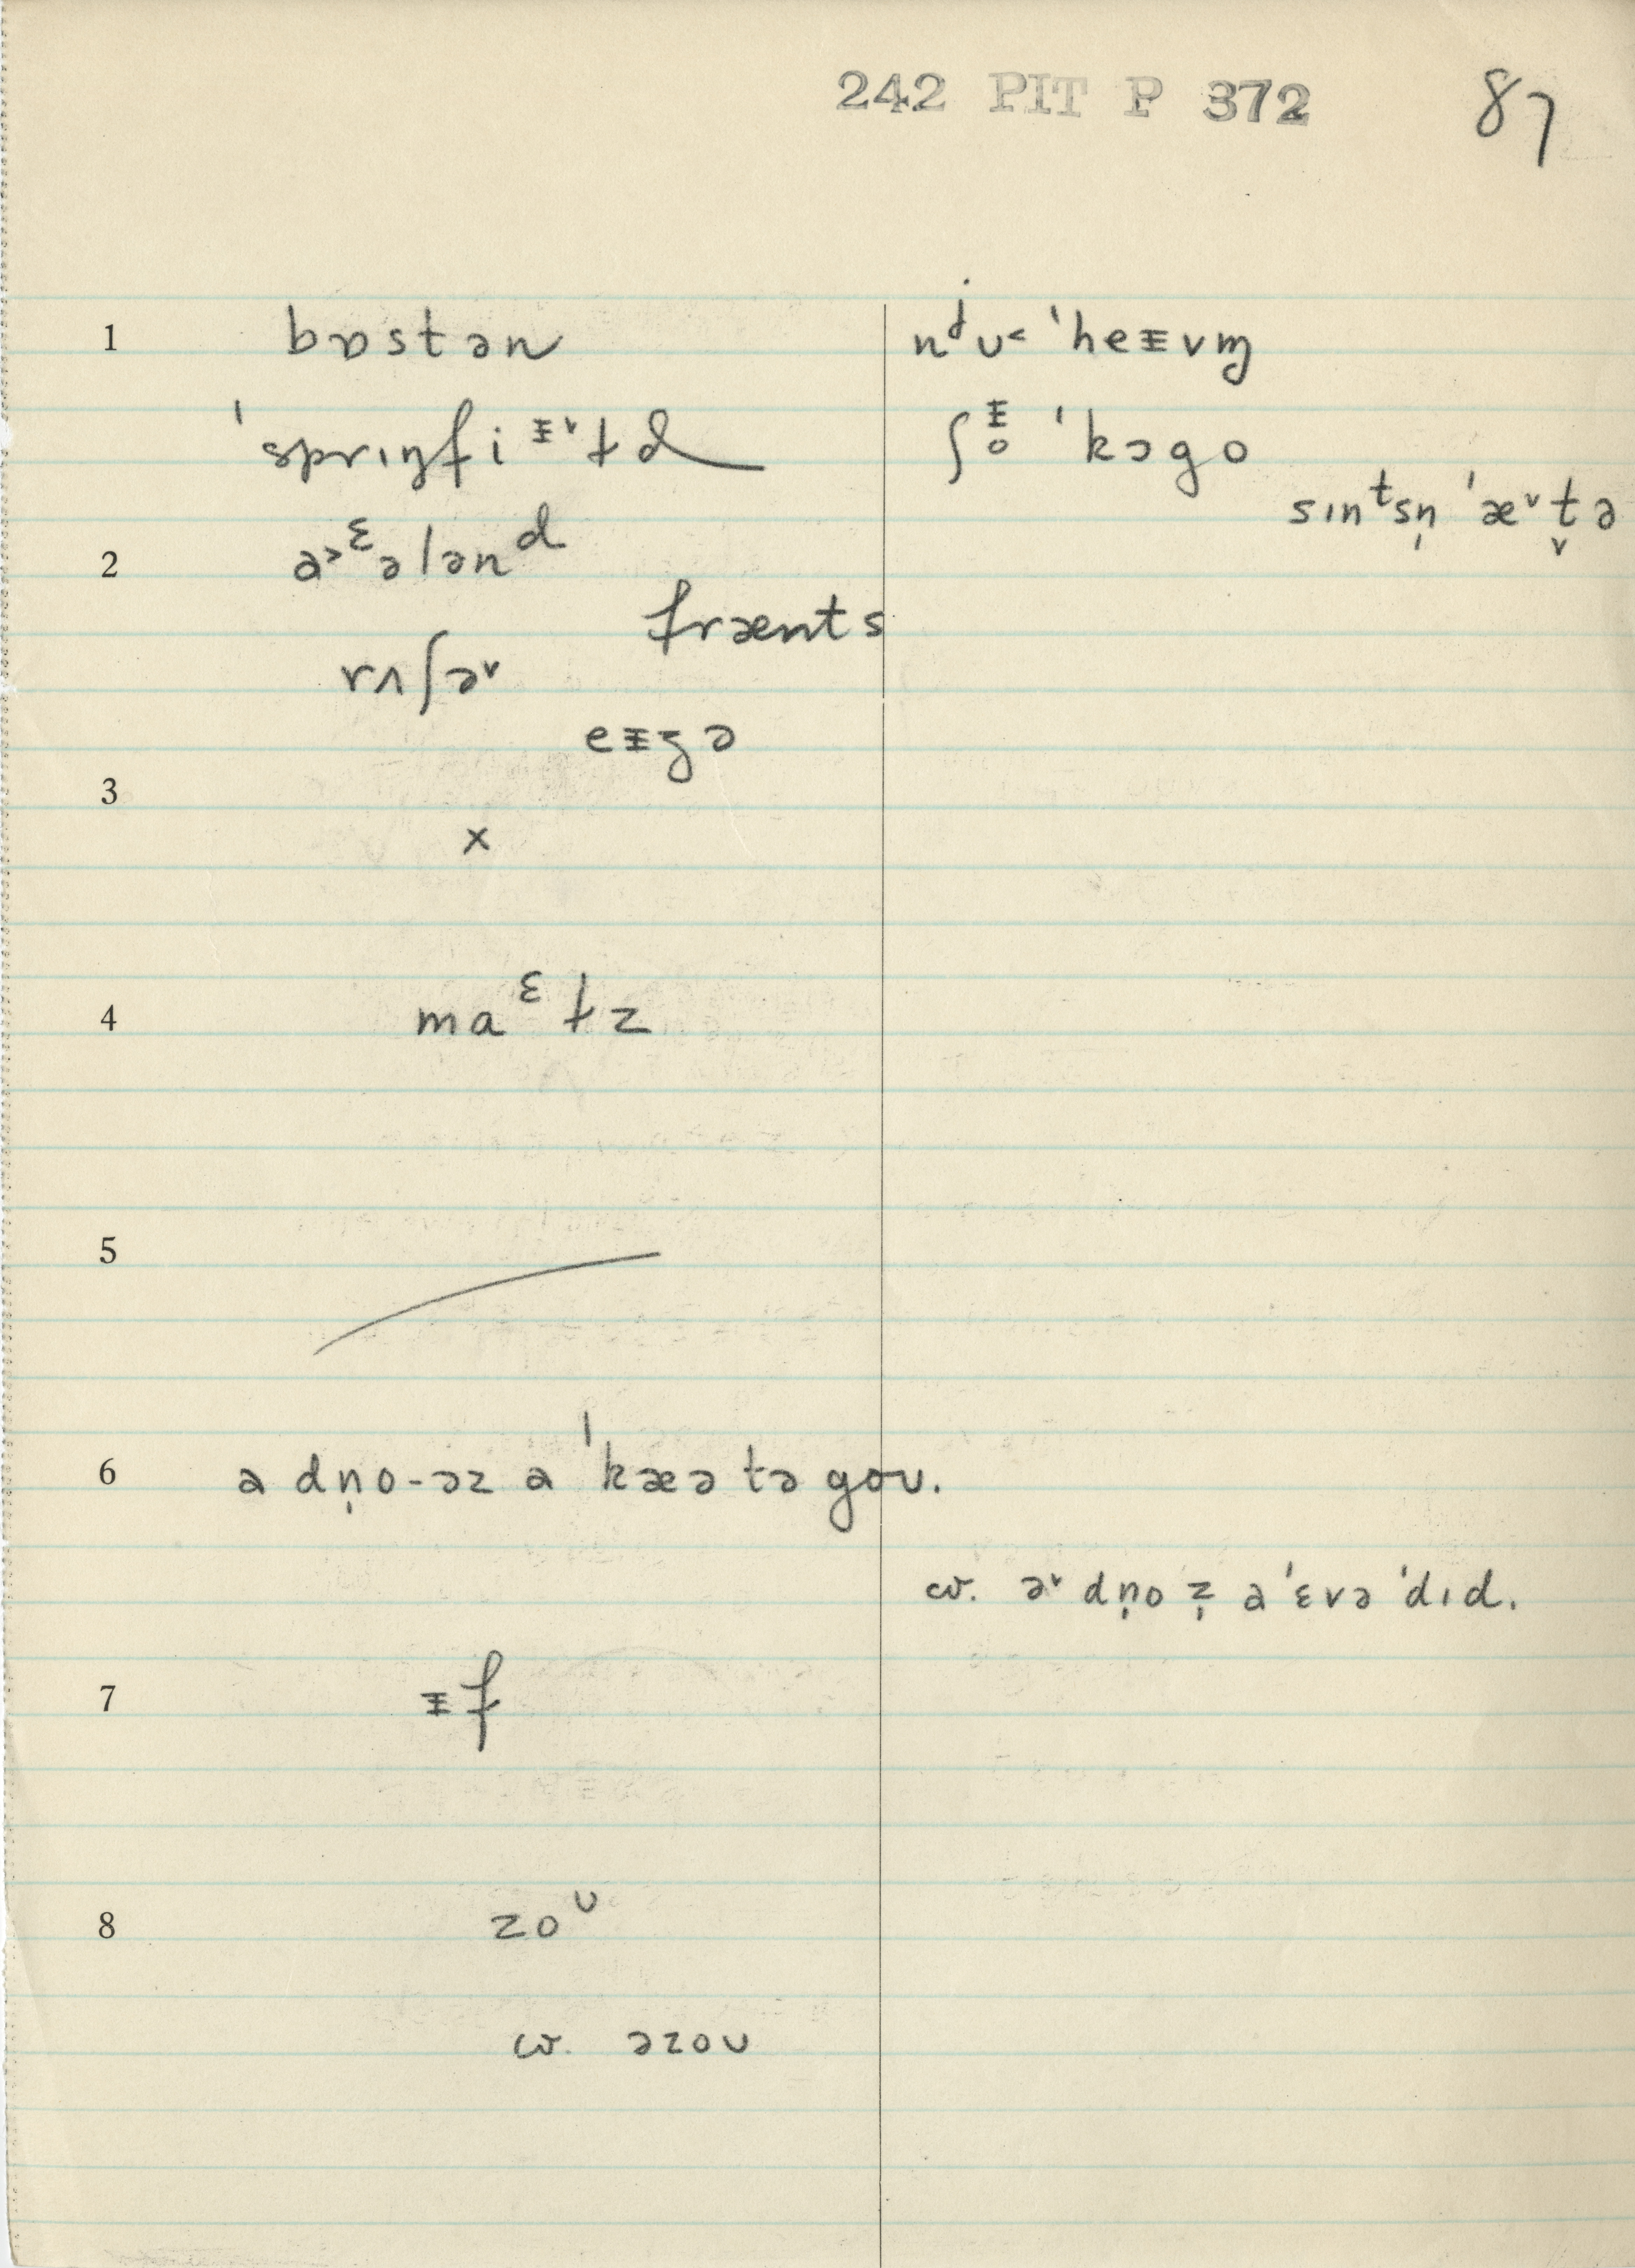 242 PIT P 372 87
1 bɒstən nʲu˂ ˈheᵻvm̩
ˈsprɪŋfiᵻ˅ɫd ʃᵻo ˈkɔgo
sɪnᵗsn̩ ˈæ˅t̬ə
2 a˃ᵋələnᵈ
frænts
rʌʃə˅
eᵻʒə
3
×
4 maᵋɫz
5
6 a dn̩o-əz a ˈkæə tə goʊ.
w. ə˅ dn̩o z̩ a ˈɛvə ˈdɪd.
7 ᵻf
8 zoᶷ
w. əzoʊ